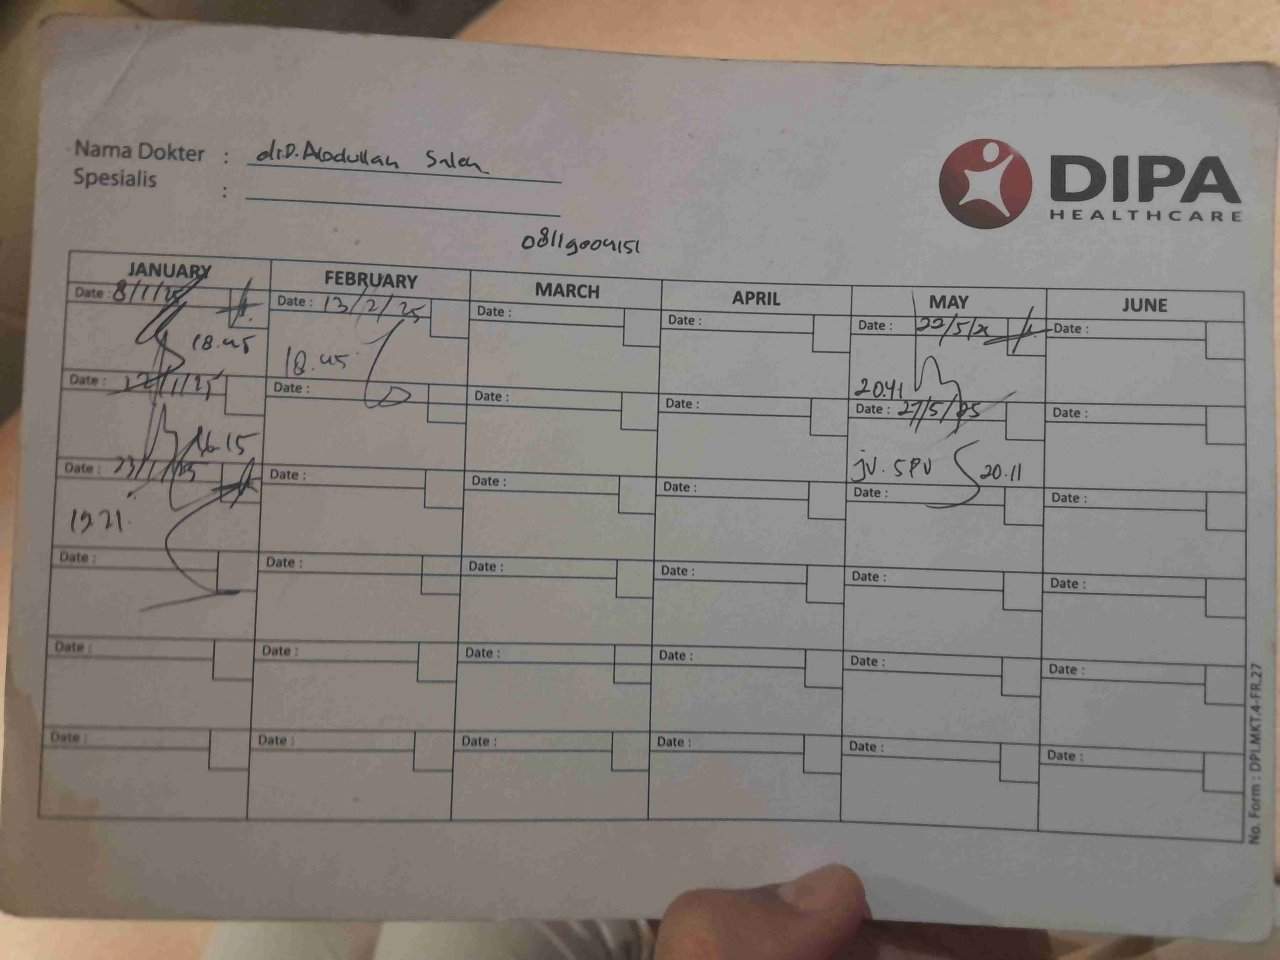 Nama Dokter : drD. Abdullah Saleh
Spesialis :
DIPA
HEALTHCARE
08119004151
JANUARY FEBRUARY MARCH APRIL MAY JUNE
Date : 8/1/25 Date : 13/2/25 Date : Date : Date : 22/5/25 Date :
18.45 18.45 20.41
Date : 22/1/25 Date : Date : Date : Date : 27/5/25 Date :
16.15 jv. SPV 20.11
Date : 23/1/25 Date : Date : Date : Date : Date :
19.21
Date : Date : Date : Date : Date : Date :
Date : Date : Date : Date : Date : Date :
Date : Date : Date : Date : Date : Date :
No. Form : DPLMKT.4-FR.27